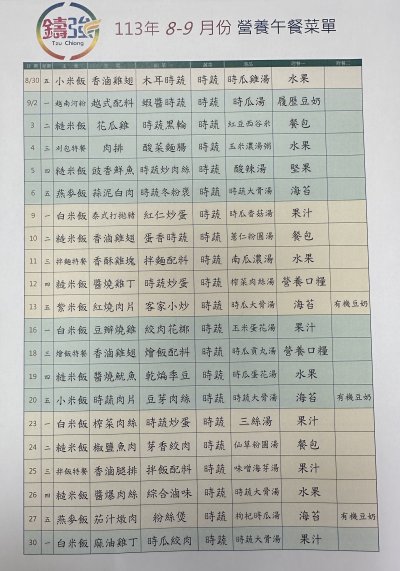 鑄強
Tzu Chiang
113年 8-9 月份 營養午餐菜單
8/30 五 小米飯 香滷雞翅 木耳時蔬 時蔬 時瓜雞湯 水果
9/2 一 越南河粉 越式配料 蝦醬時蔬 時蔬 時瓜湯 履歷豆奶
3 二 糙米飯 花瓜雞 時蔬黑輪 時蔬 紅豆西谷米 餐包
4 三 刈包特餐 肉排 酸菜麵腸 時蔬 玉米濃湯粥 水果
5 四 糙米飯 豉香鮮魚 時蔬炒肉絲 時蔬 酸辣湯 堅果
6 五 燕麥飯 蒜泥白肉 時蔬冬粉褒 時蔬 時蔬大骨湯 海苔
9 一 白米飯 泰式打拋豬 紅仁炒蛋 時蔬 時瓜香菇湯 果汁
10 二 糙米飯 香滷雞翅 蛋香時蔬 時蔬 薏仁粉圓湯 餐包
11 三 拌麵特餐 香酥雞塊 拌麵配料 時蔬 南瓜濃湯 水果
12 四 糙米飯 醬燒雞丁 時蔬炒蛋 時蔬 榨菜肉絲湯 營養口糧
13 五 紫米飯 紅燒肉片 客家小炒 時蔬 時瓜大骨湯 海苔 有機豆奶
16 一 白米飯 豆瓣燒雞 絞肉花椰 時蔬 玉米蛋花湯 果汁
18 三 燴飯特餐 香滷雞翅 燴飯配料 時蔬 時瓜貢丸湯 營養口糧
19 四 糙米飯 醬燒魷魚 乾煸季豆 時蔬 時瓜蛋花湯 水果
20 五 小米飯 時蔬肉片 豆芽肉絲 時蔬 時蔬大骨湯 海苔 有機豆奶
23 一 白米飯 榨菜肉絲 時蔬炒蛋 時蔬 三絲湯 果汁
24 二 糙米飯 椒鹽魚肉 芽香絞肉 時蔬 仙草粉圓湯 餐包
25 三 拌飯特餐 香滷腿排 拌飯配料 時蔬 味噌海芽湯 果汁
26 四 糙米飯 醬爆肉絲 綜合滷味 時蔬 時蔬大骨湯 水果
27 五 燕麥飯 茄汁燉肉 粉絲煲 時蔬 枸杞時瓜湯 海苔 有機豆奶
30 一 白米飯 麻油雞丁 時瓜絞肉 時蔬 時蔬大骨湯 果汁